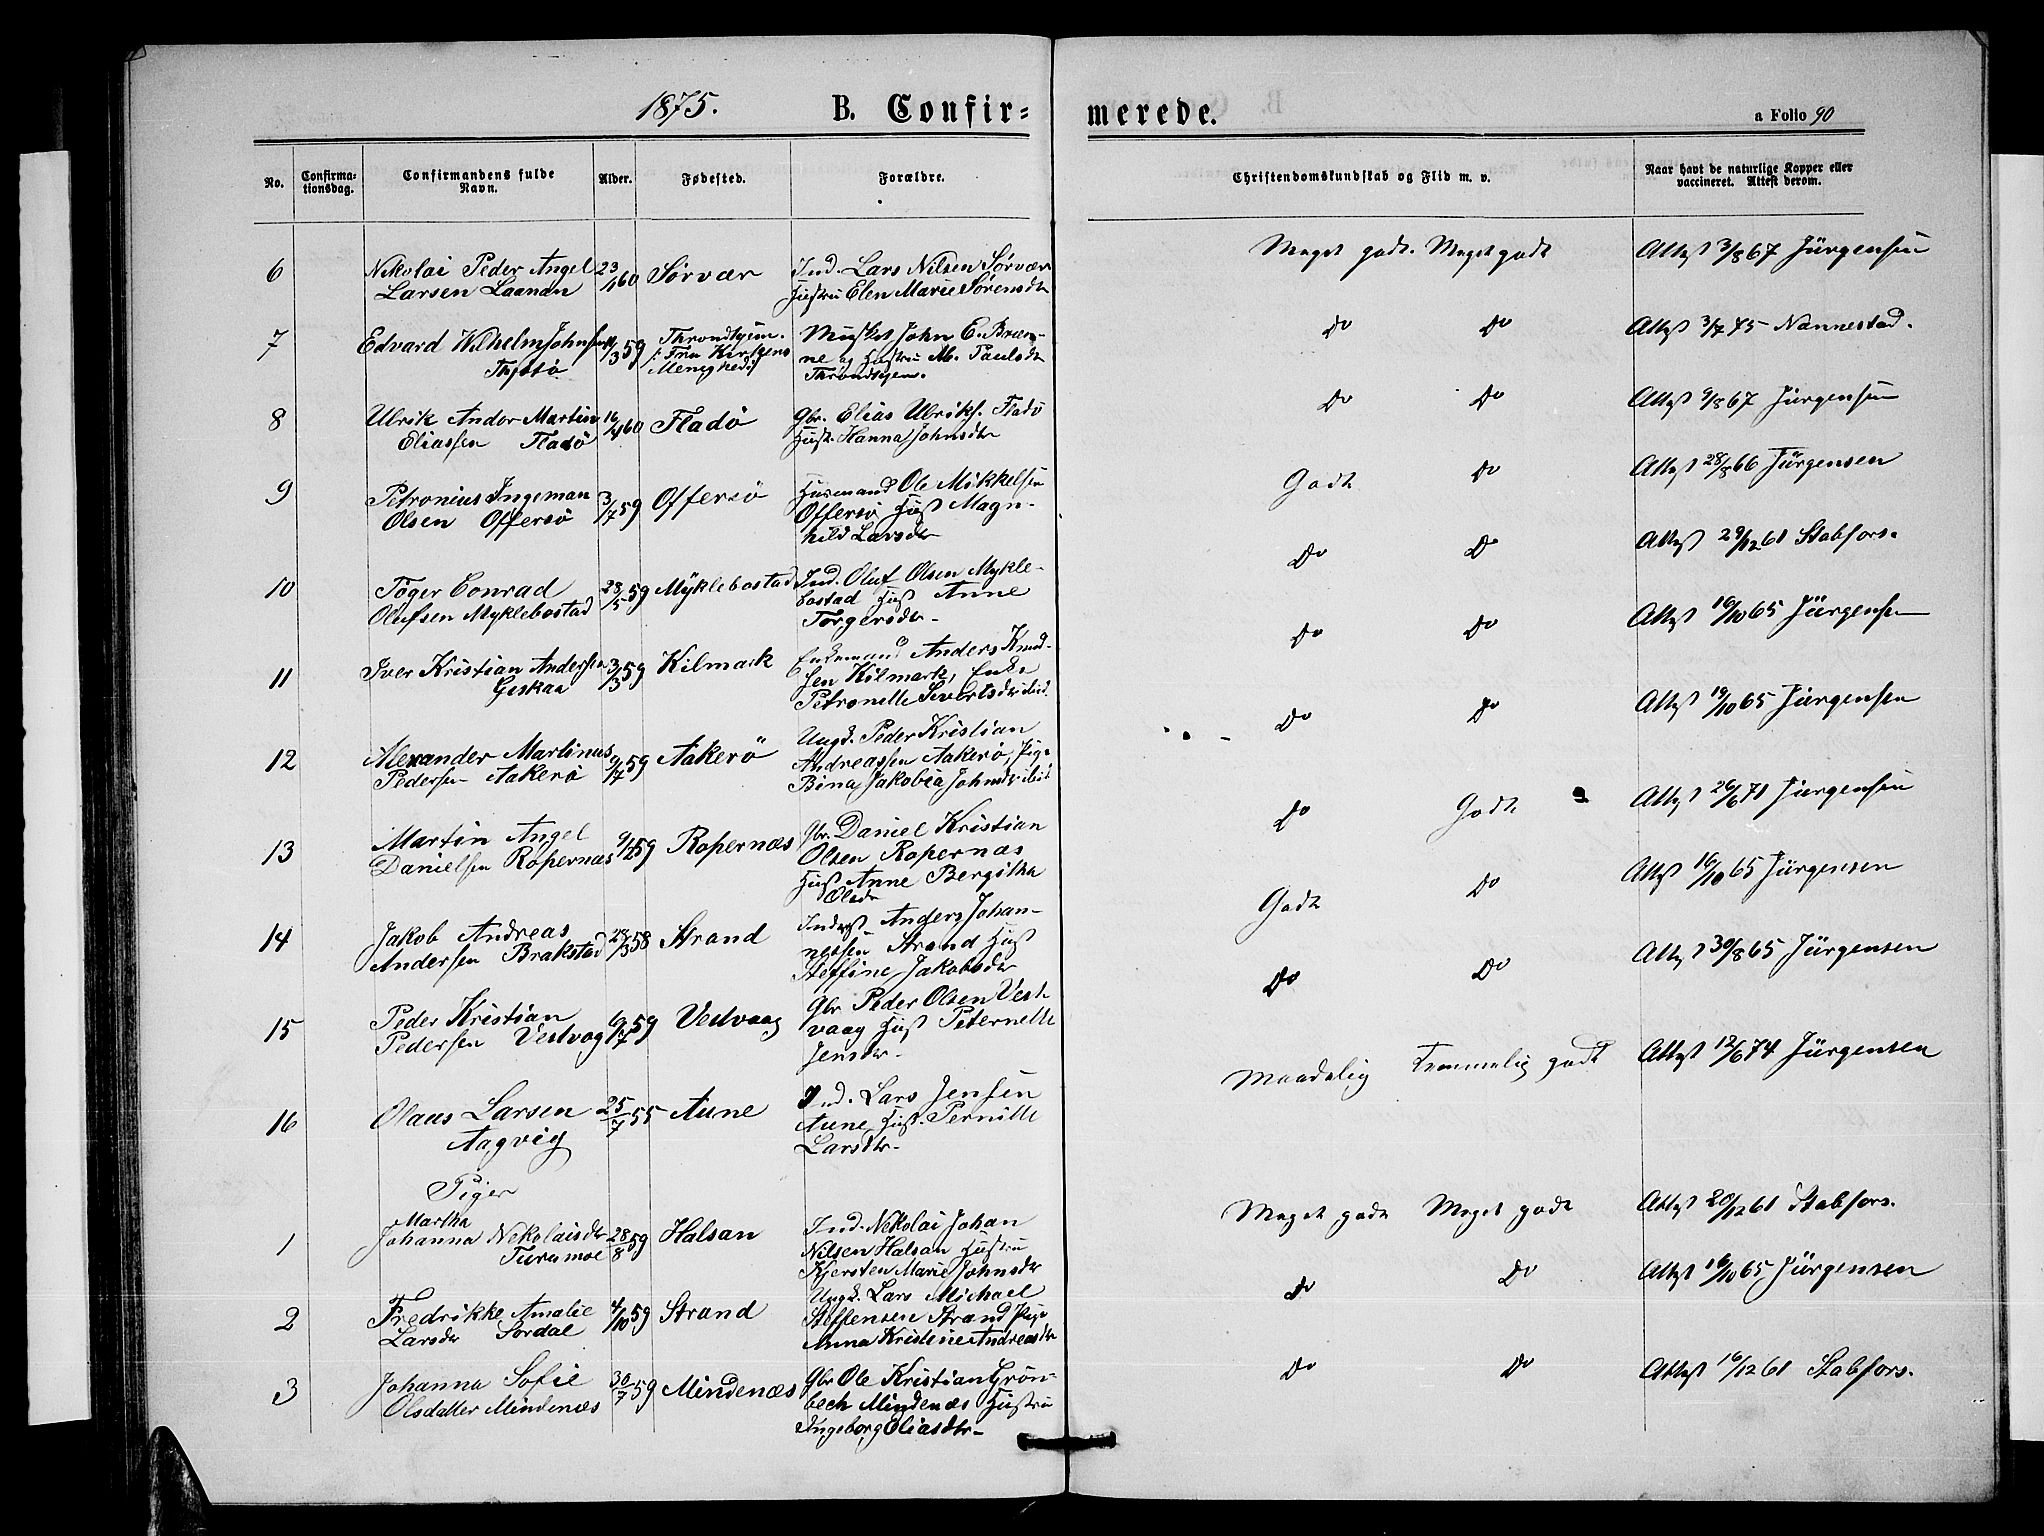 1875. B. Confir= merede. a Folio 90
No. Confirma-tionsdag. Confirmandens fulde Navn. Alder. Fødested. Forældre. Christendomskundskab og Flid m. v. Naar havt de naturlige Kopper eller vaccineret. Attest derom.
6 Nikolai Peder Angel 23/1 60 Sörvær Ind. Lars Nilsen Sörvær Meget godt. Meget godt Attest 3/8 67 Jürgensen
Larsen Laanan Hustru Elen Marie Sörensdtr
7 Edvard Wilhelm Johnsen /3 59 Throndhjem. Musket John E. Bræn- Do Do Attest 3/7 75 Nannestad.
Thjotö /: Fru Kirkens ne og Hustru M. Paulsdtr
Menighed :/ Throndhjem.
8 Ulrik Andor Martin 16/4 60 Fladö Gbr. Elias Ulriks. Fladö Do Do Attest 9/8 67 Jürgensen
Eliassen Fladö Hust. Hanna Johnsdtr
9 Petronius Ingeman 3/7 59 Offersö Husmand Ole Mikkelsen Godt Do Attest 28/8 66 Jürgensen
Olsen Offersö Offersö Hust Magn-
hild Larsdtr
10 Töger Conrad 23/5 59 Myklebostad Ind. Oluf Olsen Mykle- Do Do Attest 29/12 61 Stabfors.
Olufsen Myklebostad bostad Hust Anne
Torgersdtr
11 Iver Kristian Andersen 3/3 59 Kilmark Enkemand Anders Knud- Do Do Attest 16/10 65 Jürgensen
Geskaa sen Kilmark, Enke
Petronelle Sivertsdtr ibid.
12 Alexander Martinus 9/7 59 Aakerö Ungd. Peder Kristian Do Do Attest 19/10 65 Jürgensen
Pedersen Aakerö Andreassen Aakerö, Pige
Bina Jakobia Johnsdtr ibid
13 Martin Angel 9/12 59 Ropernæs Gbr. Daniel Kristian Do Godt Attest 26/6 71 Jürgensen
Danielsen Ropernæs Olsen Ropernæs
Hust Anne Bergitha
Olsdr
14 Jakob Andreas 28/3 58 Strand Inderst Anders Johan- Godt Do Attest 16/10 65 Jürgensen
Andersen Brakstad nessen Strand Hust
Steffine Jakobsdtr
15 Peder Kristian 6/7 59 Vestvaag Gbr Peder Olsen Vest- Do Do Attest 30/8 65 Jürgensen
Pedersen Vestvog vaag Hust Peternelle
Jensdtr
16 Olaus Larsen 25/7 55 Aune Ind. Lars Jensen Maadelig Temmelig godt Attest 12/6 74 Jürgensen
Aagvig Aune, Hust. Pernille
Larsdtr
Piger
Martha
1 Johanna Nekolaisdtr 28/8 59 Halsan Ind. Nekolai Johan Meget godt Meget godt Attest 20/12 61 Stabfors.
Turumoe Nilsen Halsan Hustru
Kjersten Marie Johnsdtr
2 Fredrikke Amalie 4/10 59 Strand Ungd. Lars Michael Do Do Attest 16/10 65 Jürgensen
Larsdtr Sordal Steffensen Strand Pige
Anna Kristine Andreasdtr
3 Johanna Sofie 30/7 59 Mindenæs Gbr Ole Kristian Grön- Do Do Attest 16/12 61 Stabfors.
Olsdatter Mindenæs bech Mindenæs Hustru
Ingeborg Eliasdtr